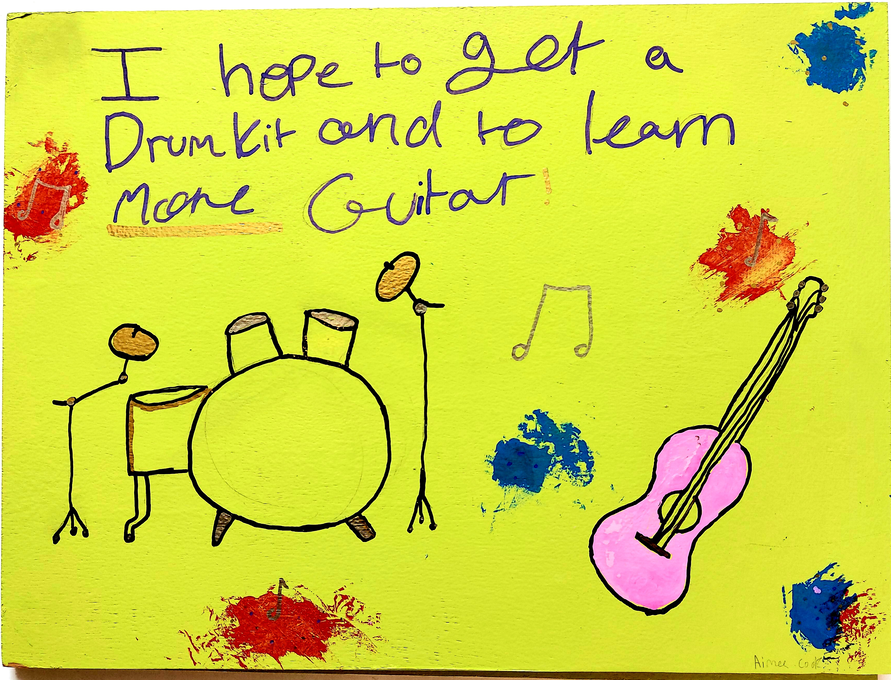 I hope to get a
Drumkit and to learn
More Guitar!
Aimee Cook